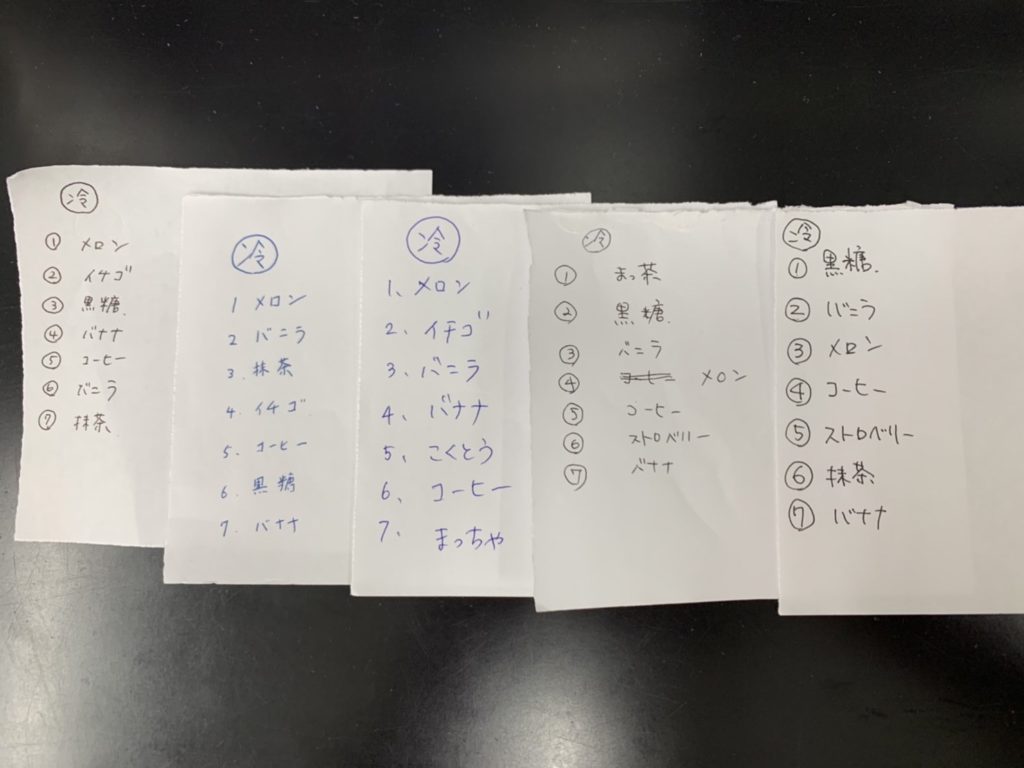 冷
① メロン
② イチゴ
③ 黒糖
④ バナナ
⑤ コーヒー
⑥ バニラ
⑦ 抹茶
冷
1 メロン
2 バニラ
3. 抹茶
4. イチゴ
5. コーヒー
6. 黒糖
7. バナナ
冷
1、メロン
2、イチゴ
3、バニラ
4、バナナ
5、こくとう
6、コーヒー
7、まっちゃ
冷
① まっ茶
② 黒糖
③ バニラ
④ メロン
⑤ コーヒー
⑥ ストロベリー
⑦ バナナ
冷
① 黒糖
② バニラ
③ メロン
④ コーヒー
⑤ ストロベリー
⑥ 抹茶
⑦ バナナ